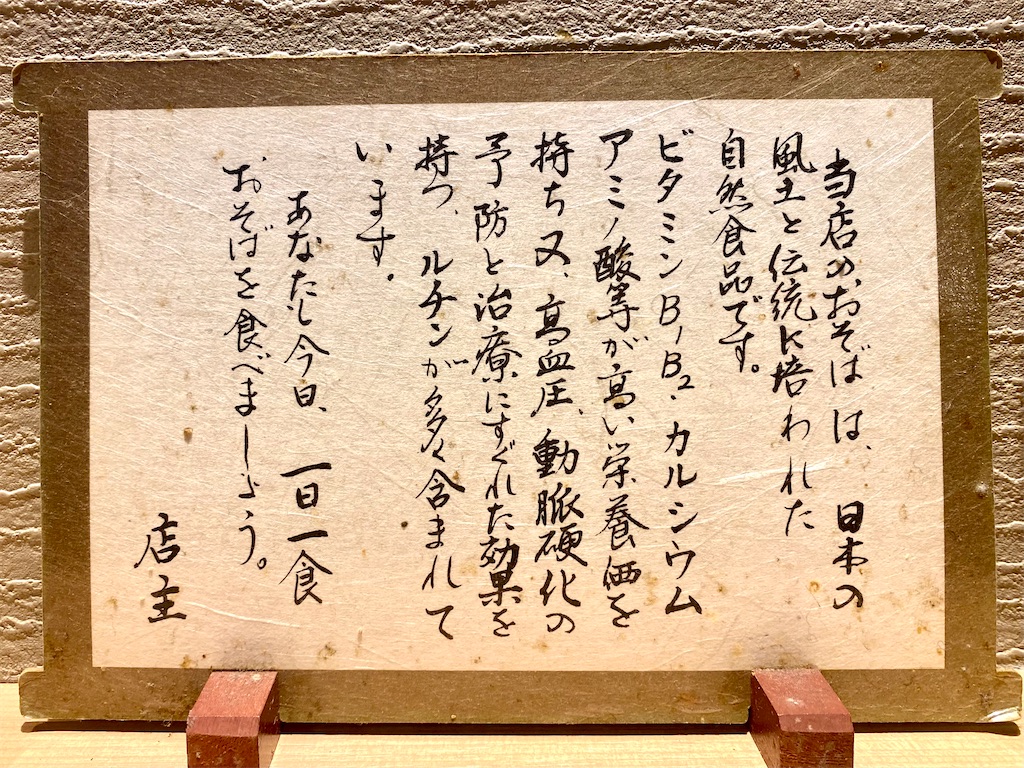 当店のおそばは、日本の
風土と伝統に培われた
自然食品です。
ビタミンB1B2、カルシウム
アミノ酸等が高い栄養価を
持ち又、高血圧、動脈硬化の
予防と治療にすぐれた効果を
持つ、ルチンが多々含まれて
います。
あなたも今日、一日一食
おそばを食べましょう。
店主